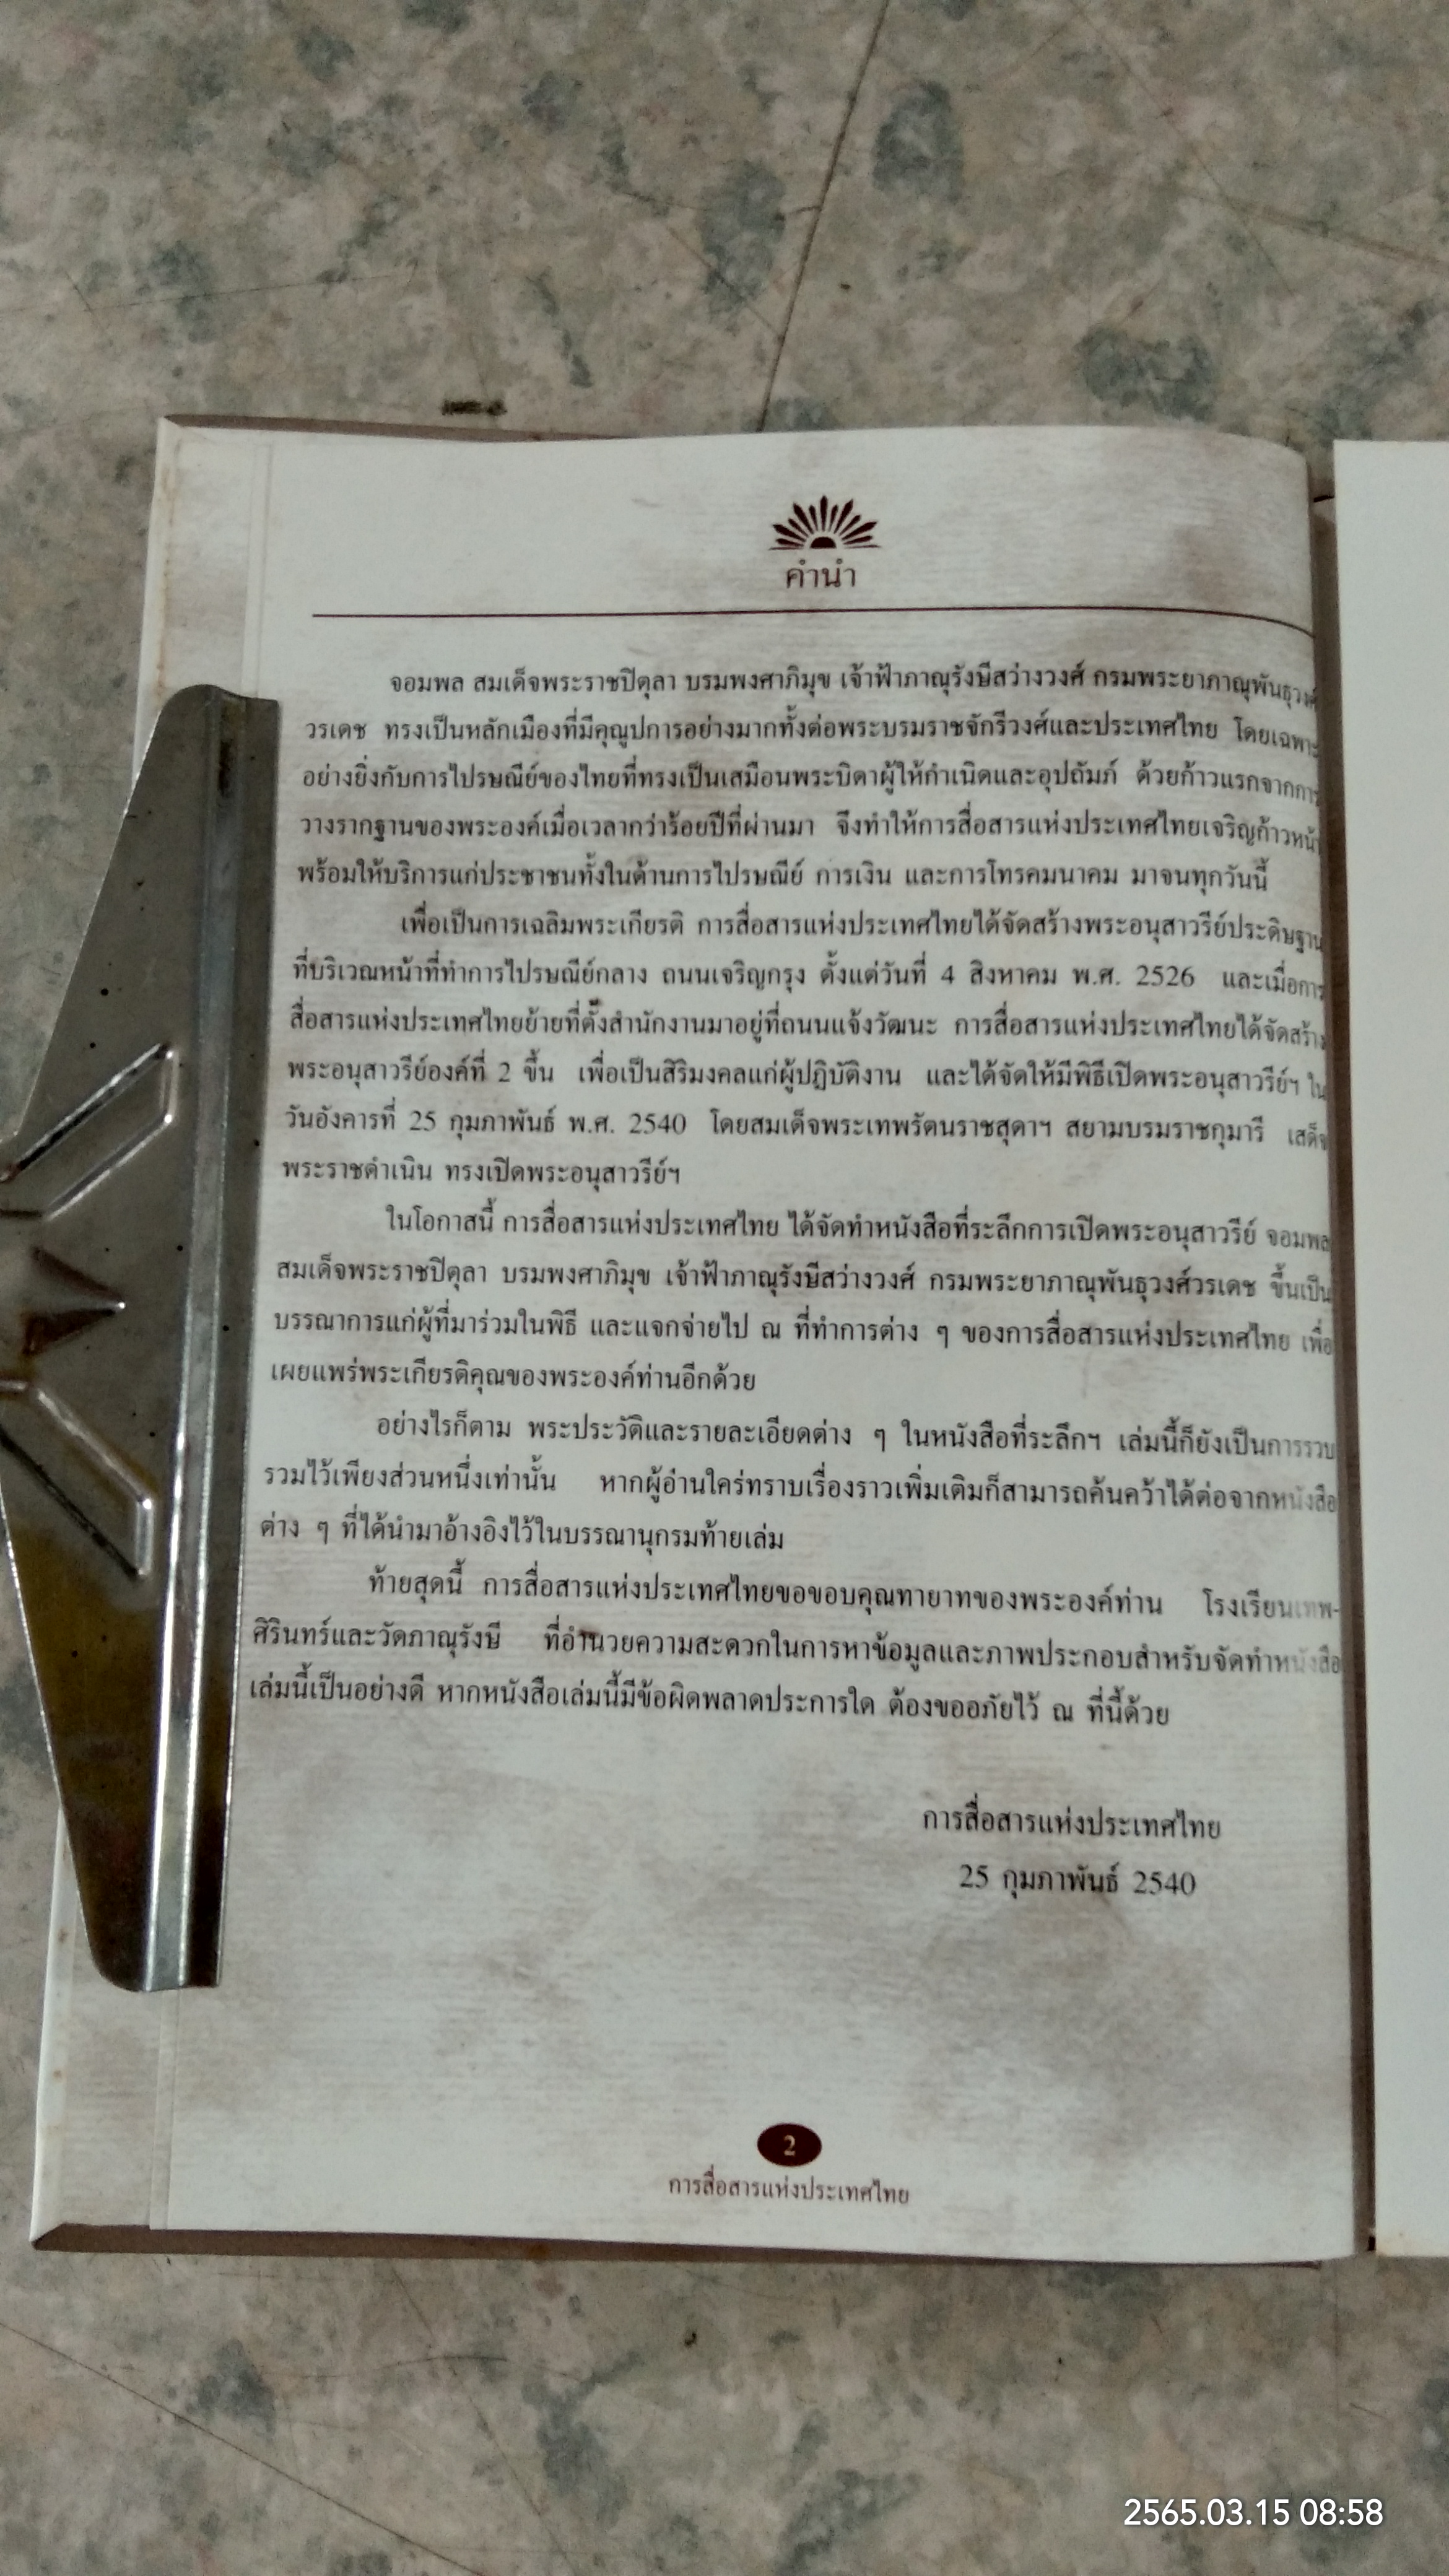 คำนำ
จอมพล สมเด็จพระราชปิตุลา บรมพงศาภิมุข เจ้าฟ้าภาณุรังษีสว่างวงศ์ กรมพระยาภาณุพันธุวงศ์
วรเดช ทรงเป็นหลักเมืองที่มีคุณูปการอย่างมากทั้งต่อพระบรมราชจักรีวงศ์และประเทศไทย โดยเฉพาะ
อย่างยิ่งกับการไปรษณีย์ของไทยที่ทรงเป็นเสมือนพระบิดาผู้ให้กำเนิดและอุปถัมภ์ ด้วยก้าวแรกจากการ
วางรากฐานของพระองค์เมื่อเวลากว่าร้อยปีที่ผ่านมา จึงทำให้การสื่อสารแห่งประเทศไทยเจริญก้าวหน้า
พร้อมให้บริการแก่ประชาชนทั้งในด้านการไปรษณีย์ การเงิน และการโทรคมนาคม มาจนทุกวันนี้
เพื่อเป็นการเฉลิมพระเกียรติ การสื่อสารแห่งประเทศไทยได้จัดสร้างพระอนุสาวรีย์ประดิษฐาน
ที่บริเวณหน้าที่ทำการไปรษณีย์กลาง ถนนเจริญกรุง ตั้งแต่วันที่ 4 สิงหาคม พ.ศ. 2526 และเมื่อการ
สื่อสารแห่งประเทศไทยย้ายที่ตั้งสำนักงานมาอยู่ที่ถนนแจ้งวัฒนะ การสื่อสารแห่งประเทศไทยได้จัดสร้าง
พระอนุสาวรีย์องค์ที่ 2 ขึ้น เพื่อเป็นสิริมงคลแก่ผู้ปฏิบัติงาน และได้จัดให้มีพิธีเปิดพระอนุสาวรีย์ฯ ใน
วันอังคารที่ 25 กุมภาพันธ์ พ.ศ. 2540 โดยสมเด็จพระเทพรัตนราชสุดาฯ สยามบรมราชกุมารี เสด็จ
พระราชดำเนิน ทรงเปิดพระอนุสาวรีย์ฯ
ในโอกาสนี้ การสื่อสารแห่งประเทศไทย ได้จัดทำหนังสือที่ระลึกการเปิดพระอนุสาวรีย์ จอมพล
สมเด็จพระราชปิตุลา บรมพงศาภิมุข เจ้าฟ้าภาณุรังษีสว่างวงศ์ กรมพระยาภาณุพันธุวงศ์วรเดช ขึ้นเป็น
บรรณาการแก่ผู้ที่มาร่วมในพิธี และแจกจ่ายไป ณ ที่ทำการต่าง ๆ ของการสื่อสารแห่งประเทศไทย เพื่อ
เผยแพร่พระเกียรติคุณของพระองค์ท่านอีกด้วย
อย่างไรก็ตาม พระประวัติและรายละเอียดต่าง ๆ ในหนังสือที่ระลึกฯ เล่มนี้ก็ยังเป็นการรวบ
รวมไว้เพียงส่วนหนึ่งเท่านั้น หากผู้อ่านใคร่ทราบเรื่องราวเพิ่มเติมก็สามารถค้นคว้าได้ต่อจากหนังสือ
ต่าง ๆ ที่ได้นำมาอ้างอิงไว้ในบรรณานุกรมท้ายเล่ม
ท้ายสุดนี้ การสื่อสารแห่งประเทศไทยขอขอบคุณทายาทของพระองค์ท่าน โรงเรียนเทพ-
ศิรินทร์และวัดภาณุรังษี ที่อำนวยความสะดวกในการหาข้อมูลและภาพประกอบสำหรับจัดทำหนังสือ
เล่มนี้เป็นอย่างดี หากหนังสือเล่มนี้มีข้อผิดพลาดประการใด ต้องขออภัยไว้ ณ ที่นี้ด้วย
การสื่อสารแห่งประเทศไทย
25 กุมภาพันธ์ 2540
2
การสื่อสารแห่งประเทศไทย
2565.03.15 08:58